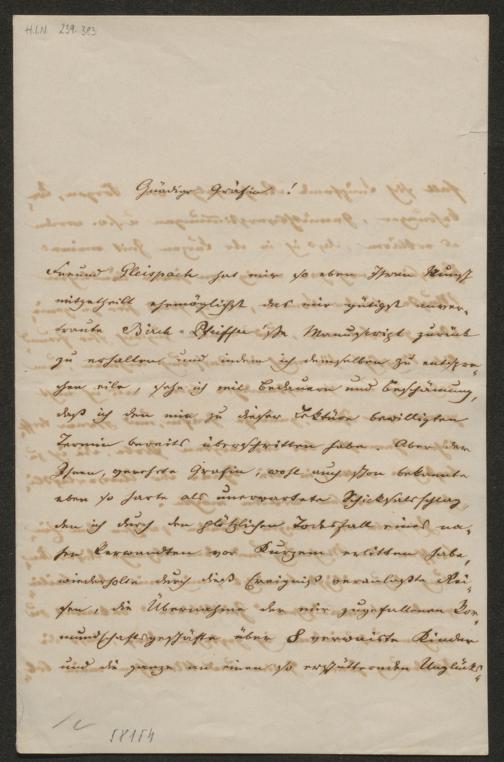 H.I.N. 239.383
Gnädige Gräfin!
Freund Gleispach hat mir so eben Ihren Wunsch
mitgetheilt ehemöglichst das mir gütigst anver-
traute Birch-Pfeiffer'sche Manuskript zurück
zu erhalten und indem ich demselben zu entspre-
chen eile, sehe ich mit Bedauern und Beschämung,
daß ich den mir zu dieser Lektüre bewilligten
Termin bereits überschritten habe. Aber der
Ihnen, verehrte Gräfin, wohl auch schon bekannte
eben so harte als unerwartete Schicksalsschlag
den ich durch den plötzlichen Todesfall eines na-
hen Verwandten vor Kurzem erlitten habe,
wiederholte durch dieß Ereigniß veranlaßte Rei-
sen, die Übernahme der mir zugefallenen Vor-
mundschaftsgeschäfte über 8 verwaiste Kinder
und die ganze an einen so erschütternden Unglücks-
58154